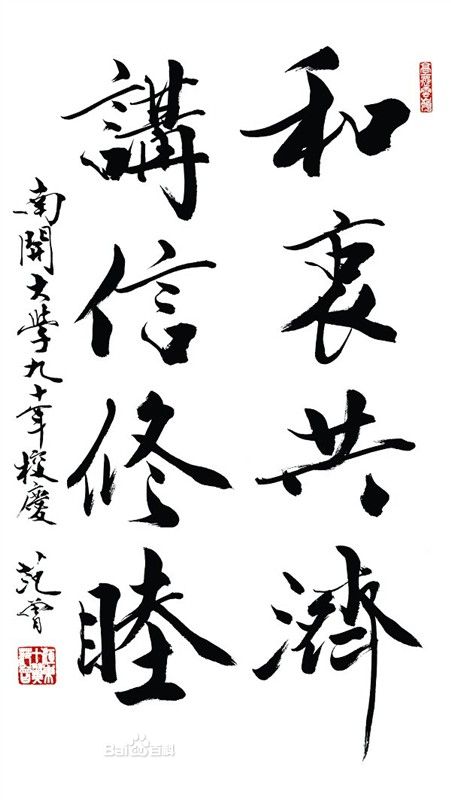 和衷共濟
講信修睦
南開大學九十年校慶 范曾
Bai百科